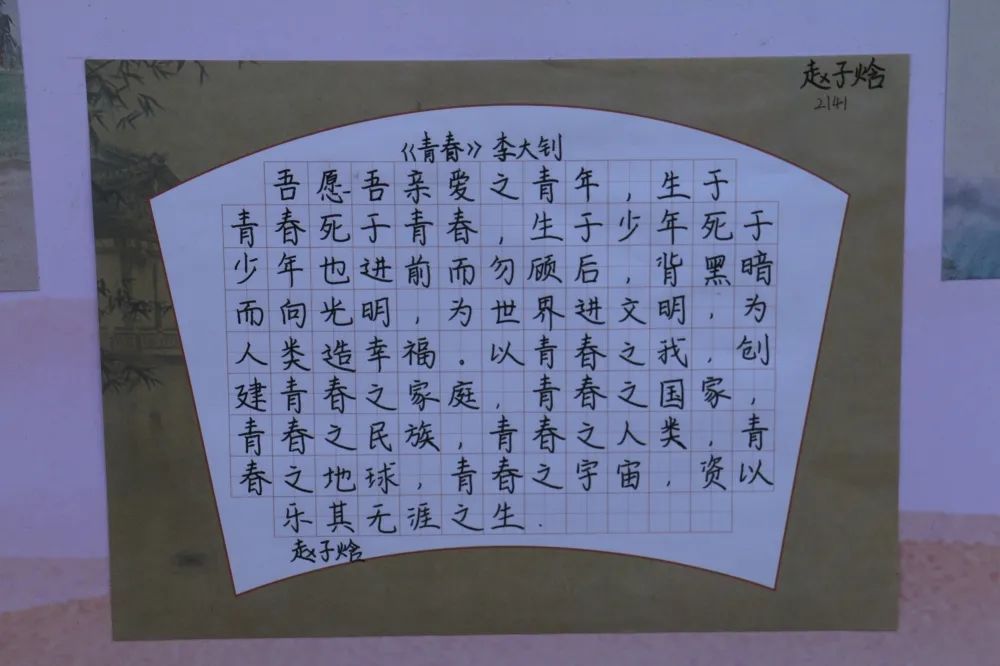 赵子焓
2141
《青春》李大钊
吾愿吾亲爱之青年，生于
青春死于青春，生于少年死于
少年也进前而勿顾后，背黑暗
而向光明，为世界进文明，为
人类造幸福。以青春之我，创
建青春之家庭，青春之国家，
青春之民族，青春之人类，青
春之地球，青春之宇宙，资以
乐其无涯之生.
赵子焓